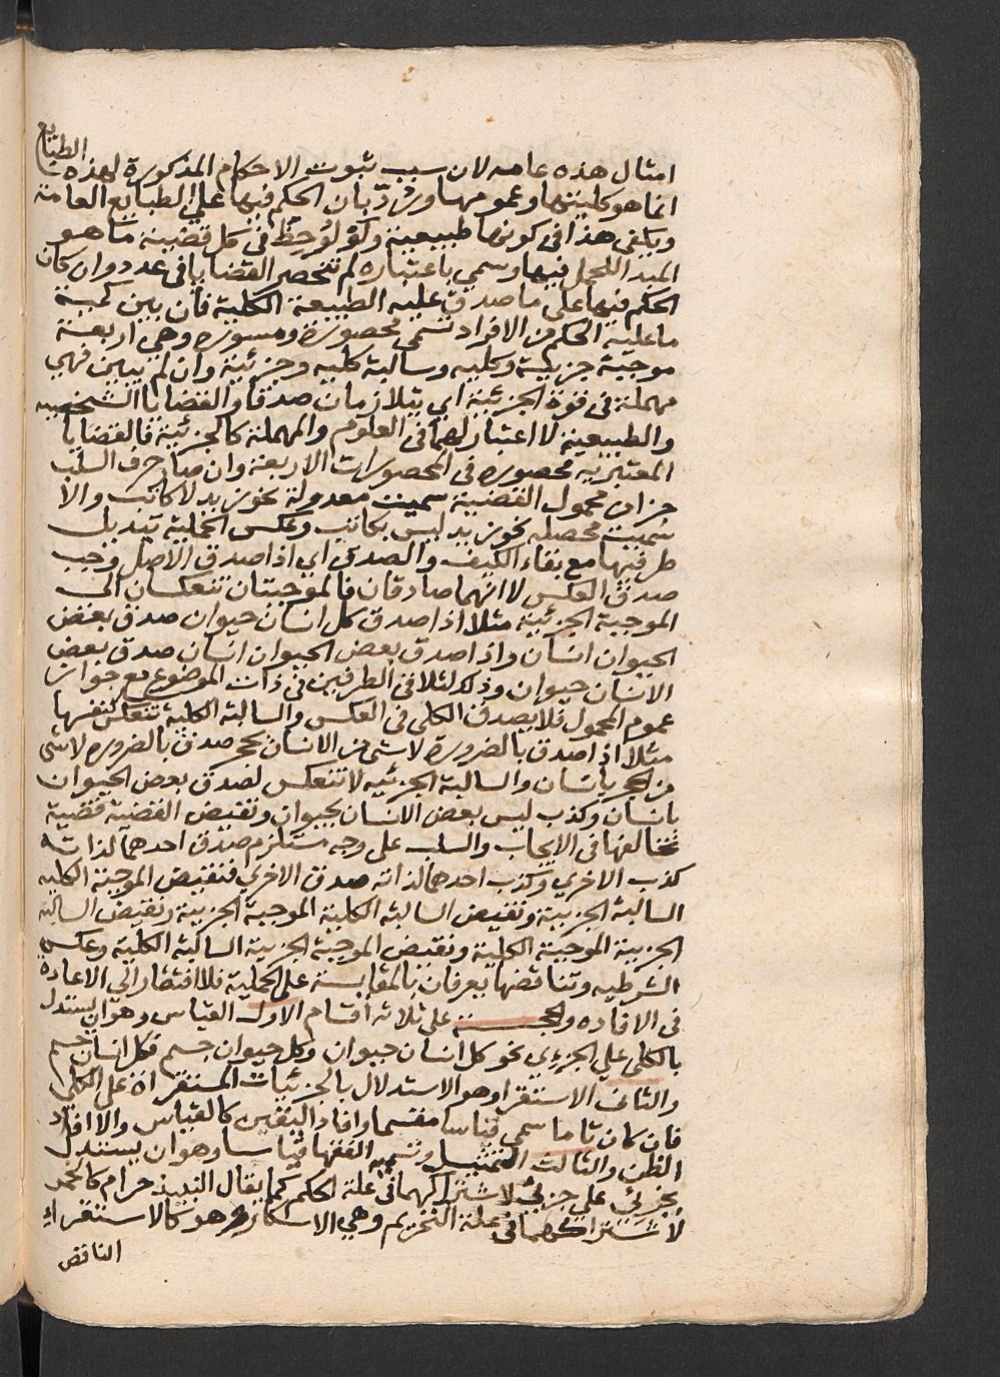 امثال هذه عامه لان سبب ثبوت الاحكام المذكورة لهذه الطبايع
انما هو كليتها وعمومها ورد بان الحكم فيها على الطبايع العامة
ويكفى هذا فى كونها طبيعية ولو لوحظ فى كل قضية ما هو
المبدا للحمل فيها وسمي باعتباره لم تنحصر القضايا فى عدد وان كان
الحكم فيها على ما صدق عليه الطبيعة الكلية فان بين كمية
ما عليه الحكم من الافراد تسمى محصورة ومسوره وهي اربعة
موجبة جزيية وكليه وسالبة كليه وجزئية وان لم يبين فهي
مهملة فى قوة الجزئية اي يتلازمان صدقا والقضايا الشخصيه
والطبيعية لا اعتبار لهما فى العلوم والمهملة كالجزئية فالقضايا
المعتبريه محصوره فى المحصورات الاربعة وان صار حرف السلب
جزا من محمول القضية سميت معدولة نحو زيد لا كاتب والا
سميت محصله نحو زيد ليس بكاتب وعكس الحملية تبديل
طرفيها مع بقاء الكيف والصدق اي اذا صدق الاصل وجب
صدق العكس لا انهما صادقان فالموجبتان تنعكسان الى
الموجبة الجزئية مثلا اذا صدق كل انسان حيوان صدق بعض
الحيوان انسان واذا صدق بعض الحيوان انسان صدق بعض
الانسان حيوان وذلك لتلاقى الطرفين فى ذات الموضوع مع جواز
عموم المحمول فلا يصدق الكلى فى العكس والسالبه الكلية تنعكس كنفسها
مثلا اذا صدق بالضرورة لا شى من الانسان بحجر صدق بالضروره لا شى
من الحجر بانسان والسالبة الجزئيه لا تنعكس لصدق بعض الحيوان
بانسان وكذب ليس بعض الانسان بحيوان ونقيض القضية قضية
تخالفها فى الايجاب والسلب على وجه مستلزم صدق احدهما لذاته
كذب الاخري وكذب احدهما لذاته صدق الاخري فنقيض الموجبة الكليه
السالبة الجزيية ونقيض السالبة الكلية الموجبة الجزيية ونقيض السالبة
الجزيية الموجبة الكلية ونقيض الموجبة الجزيية السالبة الكلية وعكس
الشرطيه وتناقضها يعرفان بالمقايسة على الحملية فلا افتقار الي الاعادة
فى الافاده والحجـــة على ثلاثه اقسام الاول القياس وهو ان يستدل
بالكلى على الجزءي نحو كل انسان حيوان وكل حيوان جسم فكل انسان جسم
والثانى الاستقرا وهو الاستدلال بالجزئيات المستقراة على الكلي
فان كان تاما سمى قياسا مقسما وافاد اليقين كالقياس والا افاد
الظن والثالث التمثيل وتسميه الفقها قياسا وهو ان يستدل
بجزئي على جزئي لاشتراكهما فى علة الحكم كما يقال النبيذ حرام كالخمر
لاشتراكهما فى علة التحريم وهي الاسكار وهو كالاستقراء
الناقص